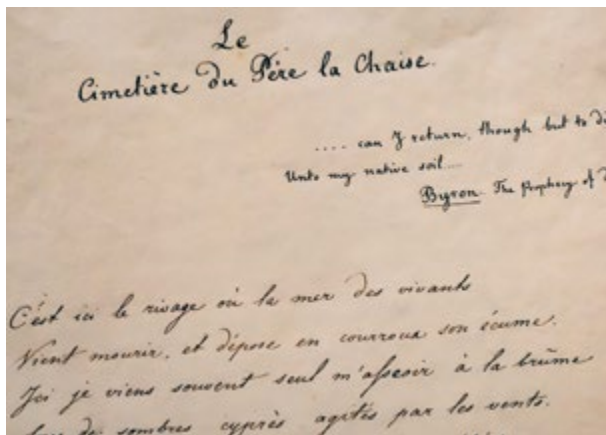 Le
Cimetière du Père la Chaise.
.... can I return, though but to di
Unto my native soil....
Byron. The Prophecy of D
C'est ici le rivage où la mer des vivants
Vient mourir, et dépose en courroux son écume.
Ici je viens souvent seul m'asseoir à la brûme
de sombres cyprès agités par les vents.